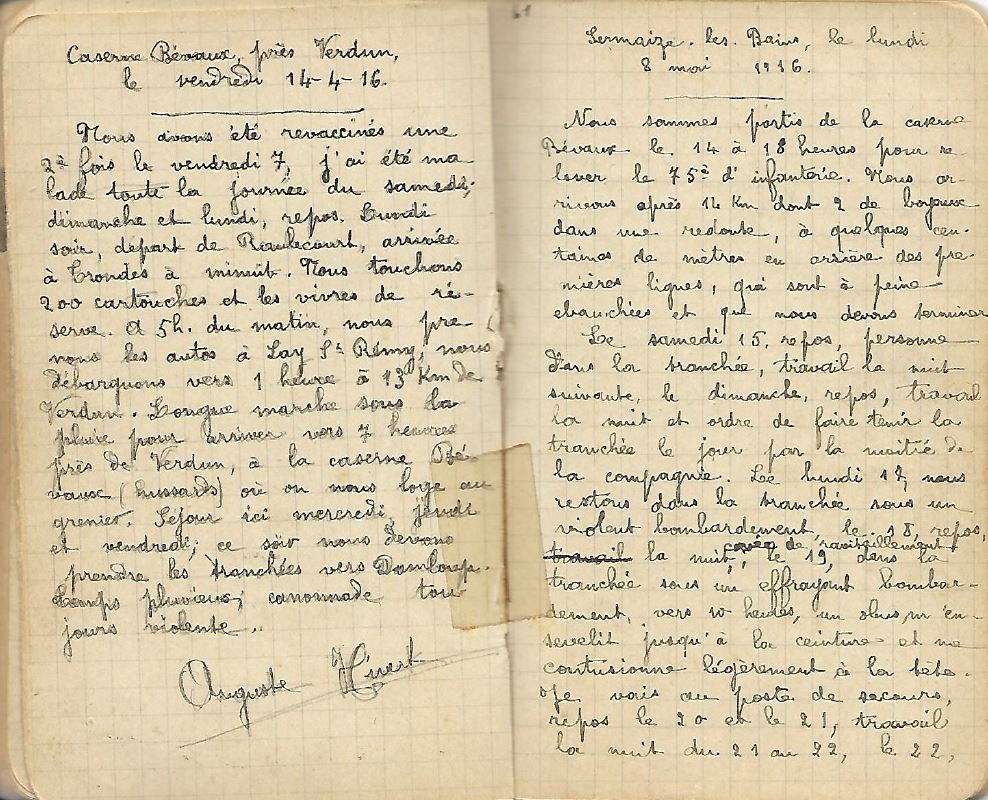 Caserne Bévaux, près Verdun,
le vendredi 14-4-16.
Nous avons été revaccinés une
2è fois le vendredi 7, j'ai été ma
lade toute la journée du samedi;
dimanche et lundi, repos. Lundi
soir, départ de Raulecourt, arrivée
à Trondes à minuit. Nous touchons
200 cartouches et les vivres de ré-
serve. A 5h. du matin, nous pre
nons les autos à Lay St Rémy, nous
débarquons vers 1 heure à 13 Km de
Verdun. Longue marche sous la
pluie pour arriver vers 7 heures
près de Verdun, à la caserne Bé-
vaux (hussards) où on nous loge au
grenier. Séjour ici mercredi, jeudi
et vendredi; ce soir nous devons
prendre les tranchées vers Damloup.
Temps pluvieux; canonnade tou
jours violente..
Auguste Hivert
61
Sermaize-les-Bains, le lundi
8 mai 1916.
Nous sommes partis de la caserne
Bévaux le 14 à 18 heures pour re-
lever le 75è d'infanterie. Nous ar-
rivons après 14 Km dont 2 de boyaux
dans une redoute, à quelques cen-
taines de mètres en arrière des pre
mières lignes, qui sont à peine
ebauchées et que nous devons terminer
Le samedi 15, repos, personne
dans la tranchée, travail la nuit
suivante, le dimanche, repos, travail
la nuit et ordre de faire tenir la
tranchée le jour par la moitié de
la compagnie. Le lundi 17, nous
restons dans la tranchée sous un
violent bombardement, le 18, repos,
corvée de ravitaillement
travail la nuit, le 19, dans la
tranchée sous un effrayant bombar-
dement, vers 10 heures, un obus m'en-
sevelit jusqu'à la ceinture et me
contusionne légèrement à la tête.
Je vais au poste de secours,
repos le 20 et le 21, travail
la nuit du 21 au 22, le 22,